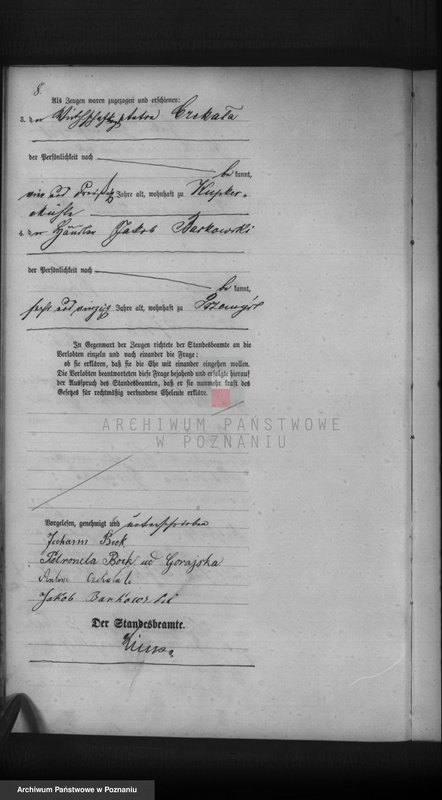 8.
Als Zeugen waren zugezogen und erschienen:
3. der Wirthschafts Crekała
der Persönlichkeit nach
be kannt,
vier und dreißig Jahre alt, wohnhaft zu Kupker-
mühle
4. der Häusler Jakob Barkowski
der Persönlichkeit nach
be kannt,
sechs und vierzig Jahre alt, wohnhaft zu
In Gegenwart der Zeugen richtete der Standesbeamte an die
Verlobten einzeln und nach einander die Frage:
ob sie erklären, daß sie die Ehe mit einander eingehen wollen.
Die Verlobten beantworteten diese Frage bejahend und erfolgte hierauf
der Ausspruch des Standesbeamten, daß er sie nunmehr kraft des
Gesetzes für rechtmäßig verbundene Eheleute erkläre.
ARCHIWUM PAŃSTWOWE
W POZNANIU
Vorgelesen, genehmigt und unterschrieben
Johann Bock
Petronela Bock ud Gorajska
Jakob Barkowski
Der Standesbeamte.
Archiwum Państwowe w Poznaniu